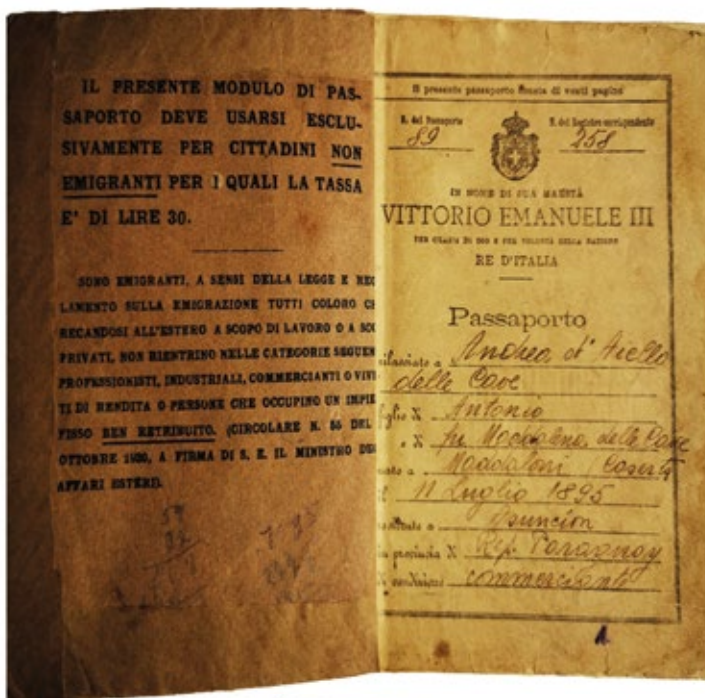 IL PRESENTE MODULO DI PAS-
SAPORTO DEVE USARSI ESCLU-
SIVAMENTE PER CITTADINI NON
EMIGRANTI PER I QUALI LA TASSA
E' DI LIRE 30.
SONO EMIGRANTI, A SENSI DELLA LEGGE E REG
LAMENTO SULLA EMIGRAZIONE TUTTI COLORO CH
RECANDOSI ALL'ESTERO A SCOPO DI LAVORO O A SCO
PRIVATI, NON RIENTRINO NELLE CATEGORIE SEGUEN
PROFESSIONISTI, INDUSTRIALI, COMMERCIANTI O VIVE
TI DI RENDITA O PERSONE CHE OCCUPINO UN IMPIE
FISSO BEN RETRIBUITO. (CIRCOLARE N. 55 DEL
OTTOBRE 1930, A FIRMA DI S. E. IL MINISTRO DEG
AFFARI ESTERI).
Il presente passaporto consta di venti pagine
N. del Passaporto
89
N. del Registro corrispondente
258
IN NOME DI SUA MAESTÀ
VITTORIO EMANUELE III
PER GRAZIA DI DIO E PER VOLONTÀ DELLA NAZIONE
RE D'ITALIA
Passaporto
rilasciato a Andrea d' Aiello
delle Cave
figlio X Antonio
e X fu Maddalena delle Cave
nato a Maddaloni (Caserta
il 11 Luglio 1895
residente a Asuncion
in provincia X Rep. Paraguay
di condizione commerciante